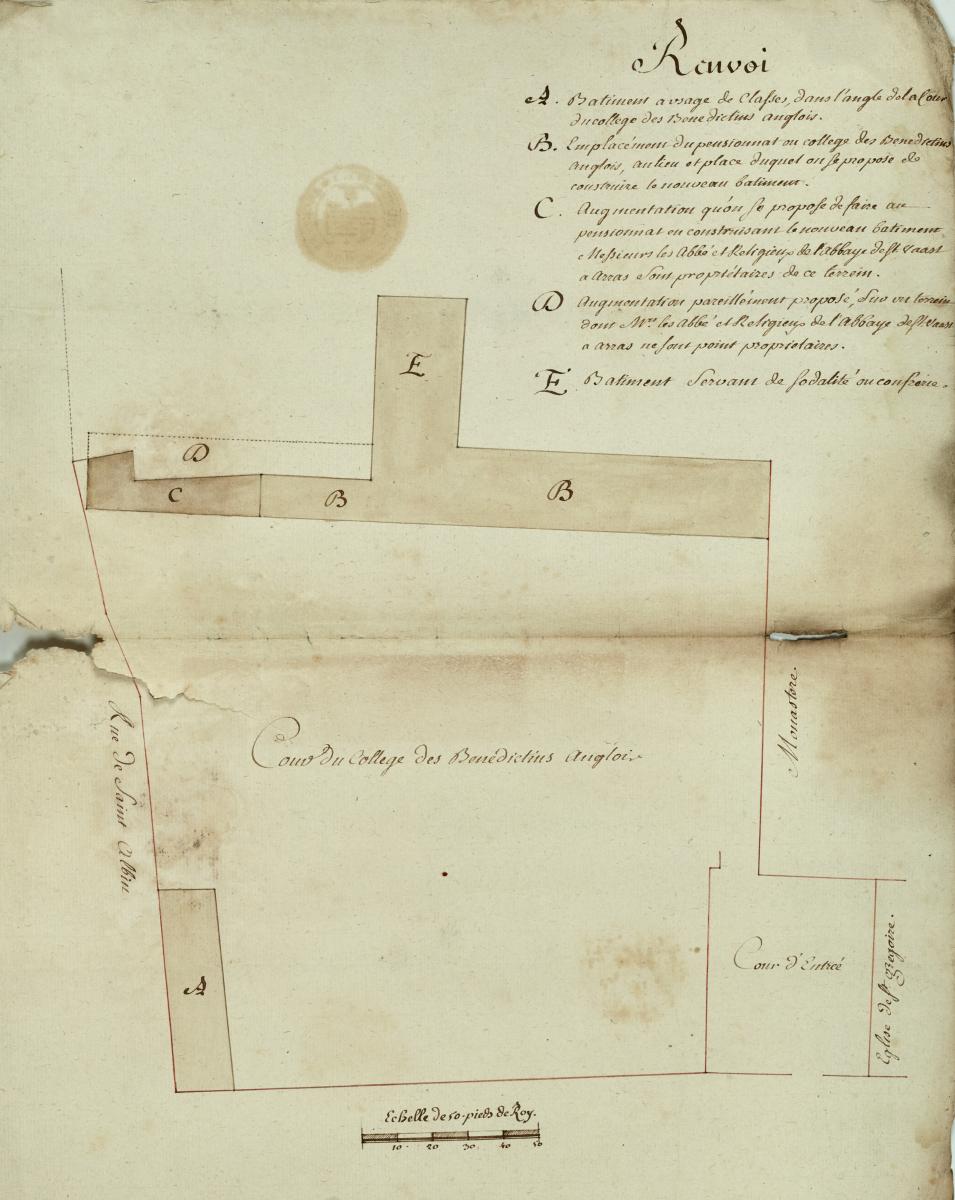 Renvoi
A. Batiment a usage de Classes, dans l'angle de la Cour
du college des Benedictins anglois.
B. Emplacément du pensionnat ou college des Benedictins
Anglois, au lieu et place duquel on se propose de
construire le nouveau batiment.
C. Augmentation qu'on se propose de faire au
pensionnat en construisant le nouveau batiment
Messieurs les Abbé et Religieux de l'Abbaye de St Vaast
a Arras sont propriétaires de ce terrein.
D Augmentation pareillément proposé, sur un terrein
dont Mrs les Abbé et Religieux de l'Abbaye de St Vaast
a arras ne sont point propriétaires.
E Batiment servant de sodalité ou confrerie.
E
D
C
B
B
Monastere.
Rue de Saint Albin
Cour du College des Benédictins Anglois
A
Cour d'Entrée
Eglise de St Gregoire.
Echelle de 50 pieds de Roy.
10 20 30 40 50